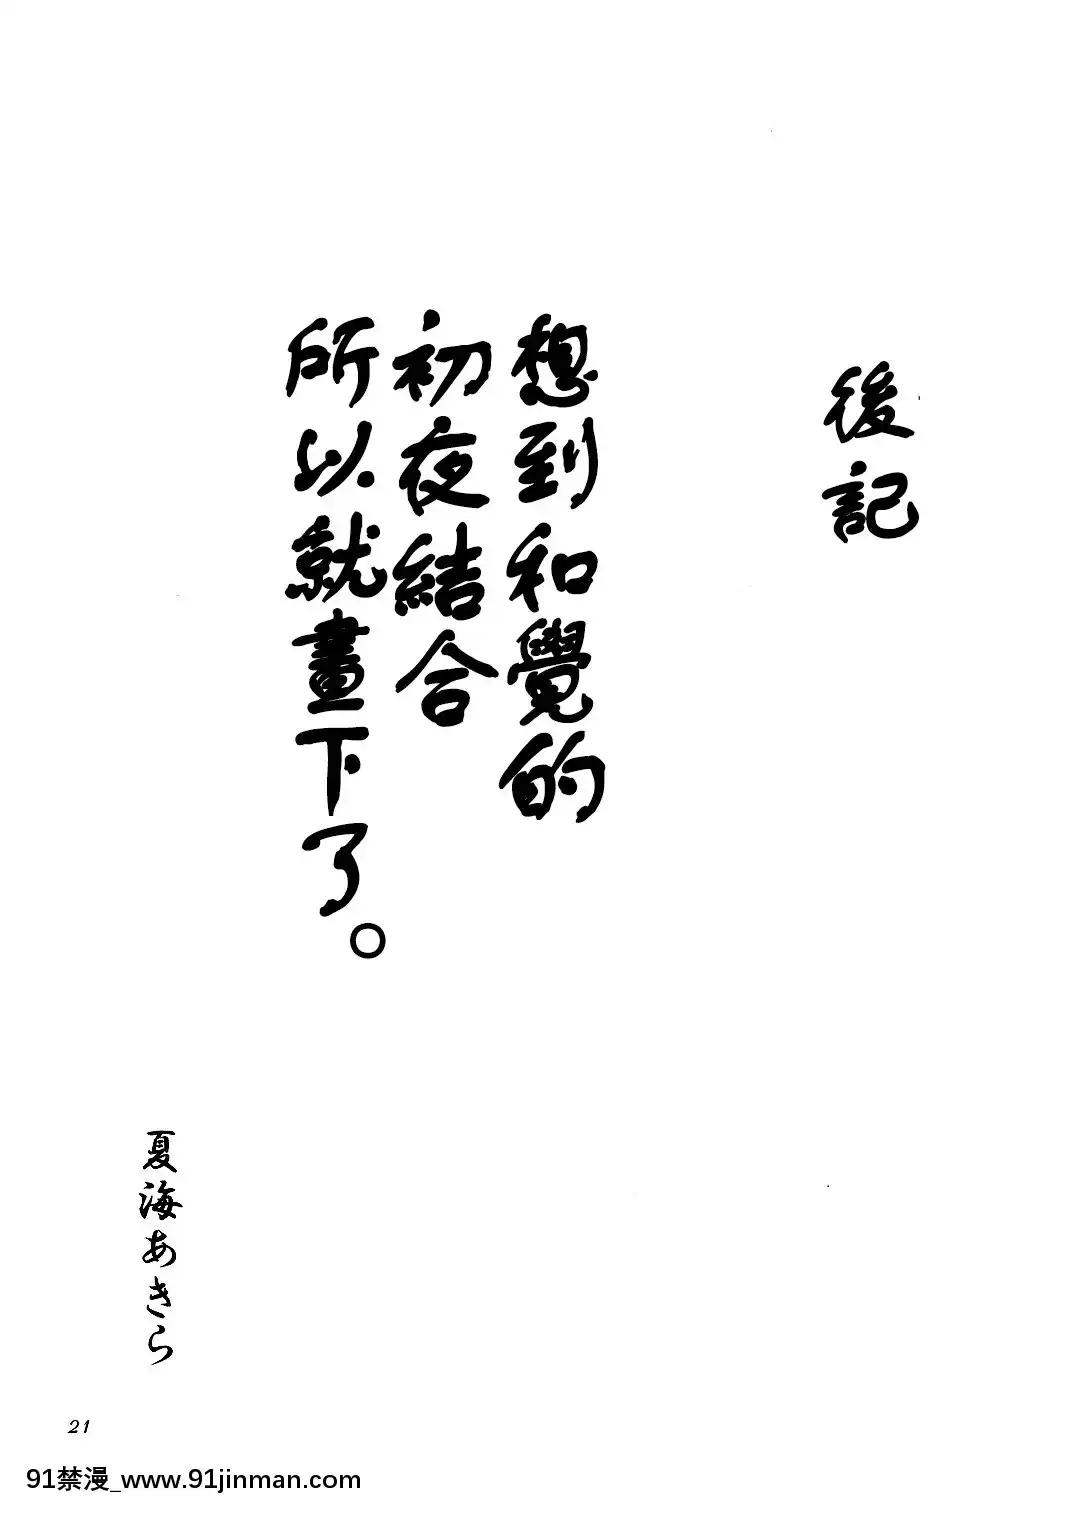 後記
想到和覺的
初夜結合
所以就畫下了。
夏海あきら
21
91禁漫_www.91jinman.com